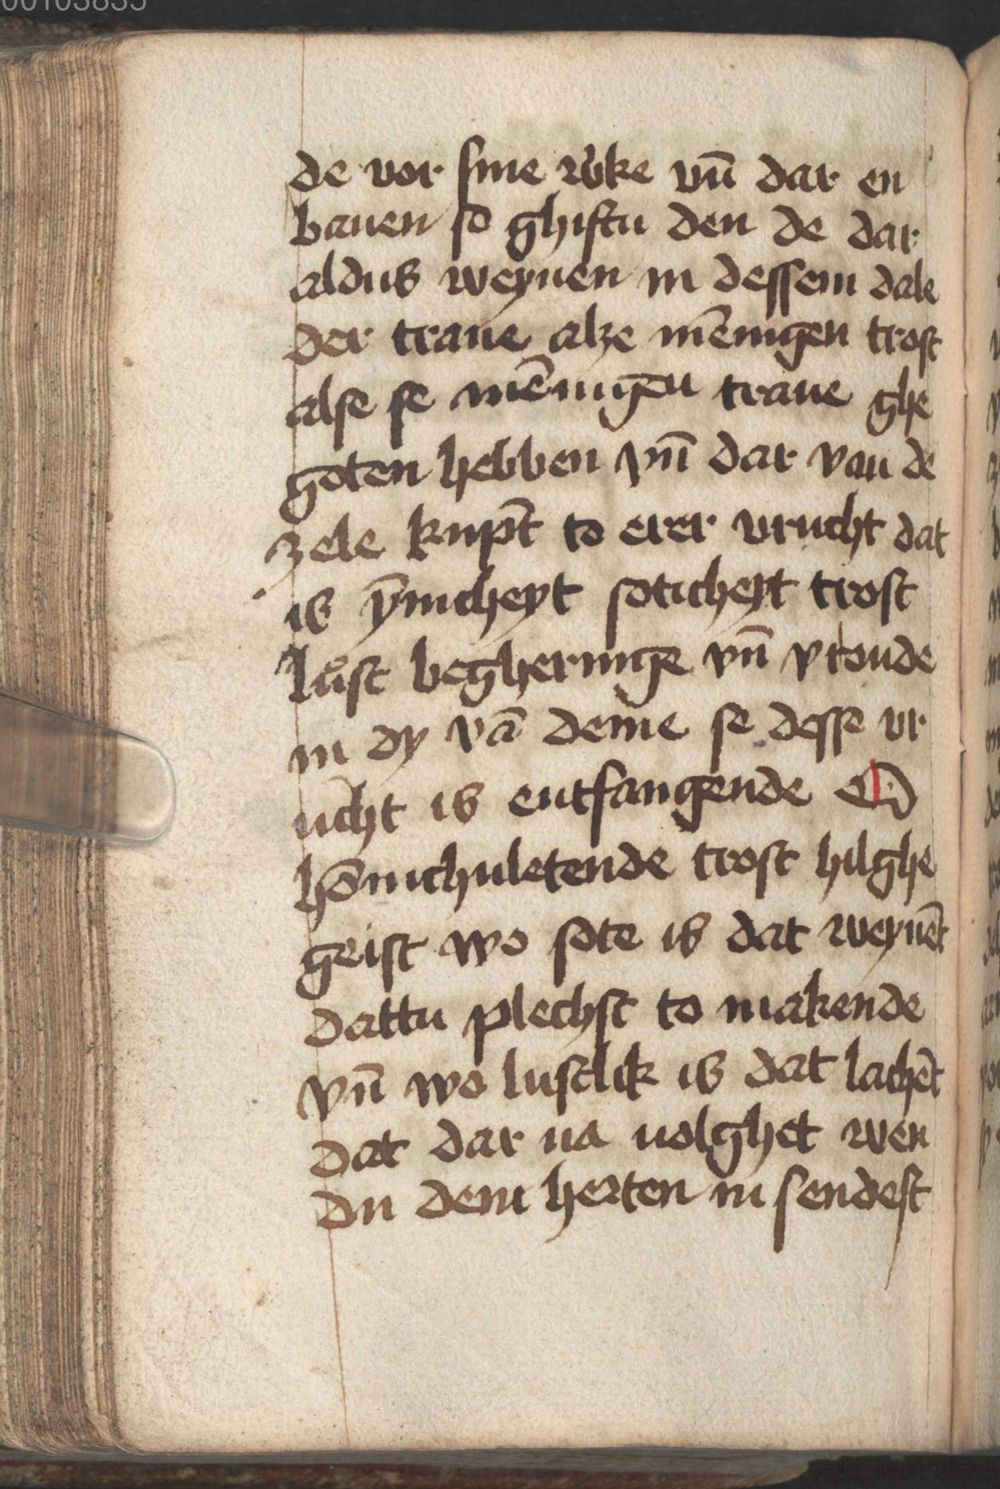 00103835
de vor sine rvͦke vn̄ dar en
bauen so ghiftu den de dar
aldus weynen in dessem dale
der trane alze mēnigen trost
alse se mēnigen trane ghe
goten hebben vn̄ dar van de
zele kūpt to erer vrucht dat
is ȳnicheyt soticheyt trost
lust begheringe vn̄ vroude
in dy vā deme se desse vr
ucht is entfangende O
hōnichuletende trost hilghe
geist wo sote is dat weynēt
dattu plechst to makende
vn̄ wo lustlik is dat lachēt
dat dar na volghet wen
du dem herten in sendest